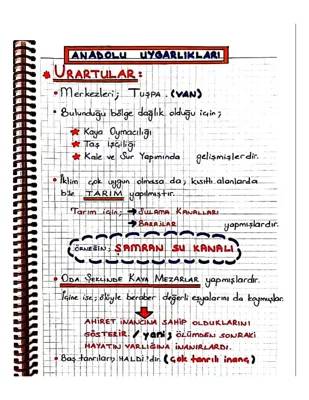 ANADOLU UYGARLIKLARI
★ URARTULAR:
• Merkezleri; TUŞPA. (VAN)
• Bulunduğu bölge dağlık olduğu için;
★ Kaya Oymacılığı
★ Taş işçiliği
★ Kale ve Sur Yapımında gelişmişlerdir.
• İklim çok uygun olmasa da, kısıtlı alanlarda
bile TARIM yapılmıştır.
Tarım için; → SULAMA KANALLARI
→ BARAJLAR yapmışlardır.
ÖRNEĞİN; ŞAMRAN SU KANALI
• ODA ŞEKLİNDE KAYA MEZARLAR yapmışlardır.
İçine ise; ölüyle beraber değerli eşyalarını da koymuşlar.
AHİRET İNANCINA SAHİP OLDUKLARINI
GÖSTERİR. / yani; ÖLÜMDEN SONRAKİ
HAYATIN VARLIĞINA İNANIRLARDI.
• Baş tanrıları; HALDİ'dir. (Çok tanrılı inanç)